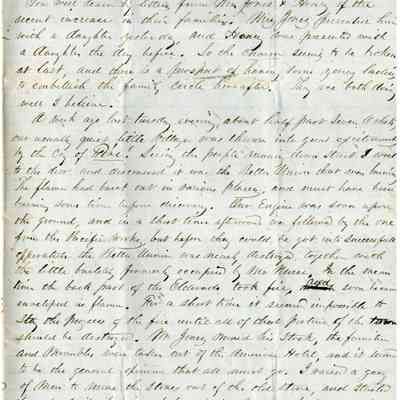 You will learn by letters from Mr Jones & Henry of the
recent increase in their families. Mrs Jones presented him
with a daughter yesterday and Henry was presented with
a daughter the day before. So the charm seems to be broken
at last, and there is a prospect of having some young ladies
to embellish the family circle hereafter. They are both doing
well I believe.
A week ago last tuesday evening, about half past seven O clock
our usually quiet little village was thrown into great excitement
by the cry of Fire. Seeing the people running down Street I went
to the door and discovered it was the Hotte Union that was burning
The flame had burst out in various places, and must have been
burning some time before discovery. Our Engine was soon upon
the ground, and in a short time afterward was followed by the one
from the Pacific works, but before they could be got into successful
operation the Union was nearly destroyed together with
the little building formerly occupied by Mr In the mean
time the back part of the Eldorado took fire, and soon became
enveloped in flame. For a short time it seemed impossible to
stay the progress of the fire until all of that portion of the town
should be destroyed. Mr Jones moved his Stock, the furniture
and moveables were taken out of the American Hotel, and it seemed
to be the general opinion that all must go. I raised a gang
of men to move the stores out of the old store, and started